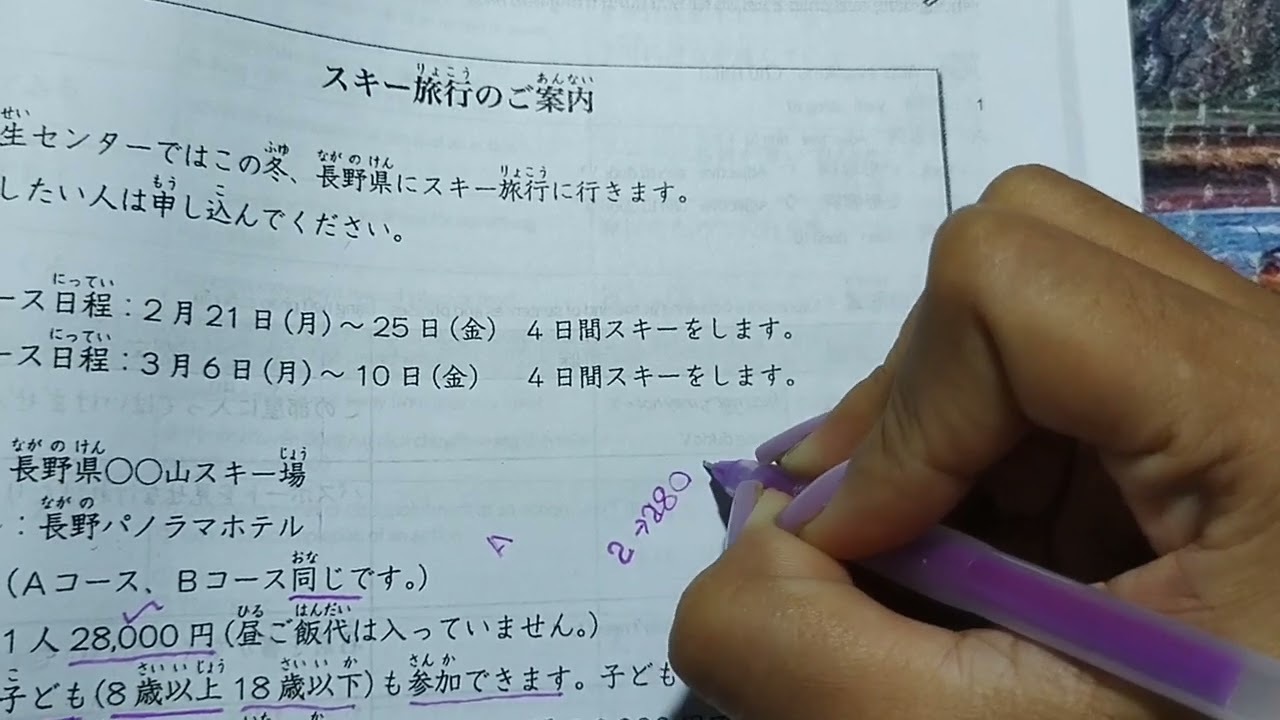 スキー旅行のご案内
りょこう あんない
せい ふゆ ながのけん りょこう
生センターではこの冬、長野県にスキー旅行に行きます。
もう こ
したい人は申し込んでください。
にってい
ース日程：2月21日(月)～25日(金) 4日間スキーをします。
にってい
ース日程：3月6日(月)～10日(金) 4日間スキーをします。
ながのけん じょう
長野県○○山スキー場
ながの
：長野パノラマホテル
おな
(Aコース、Bコース同じです。)
A 2→280
ひる はんだい
1人28,000円(昼ご飯代は入っていません。)
こ さいいじょう さいいか さんか
子ども(8歳以上18歳以下)も参加できます。子ども
1